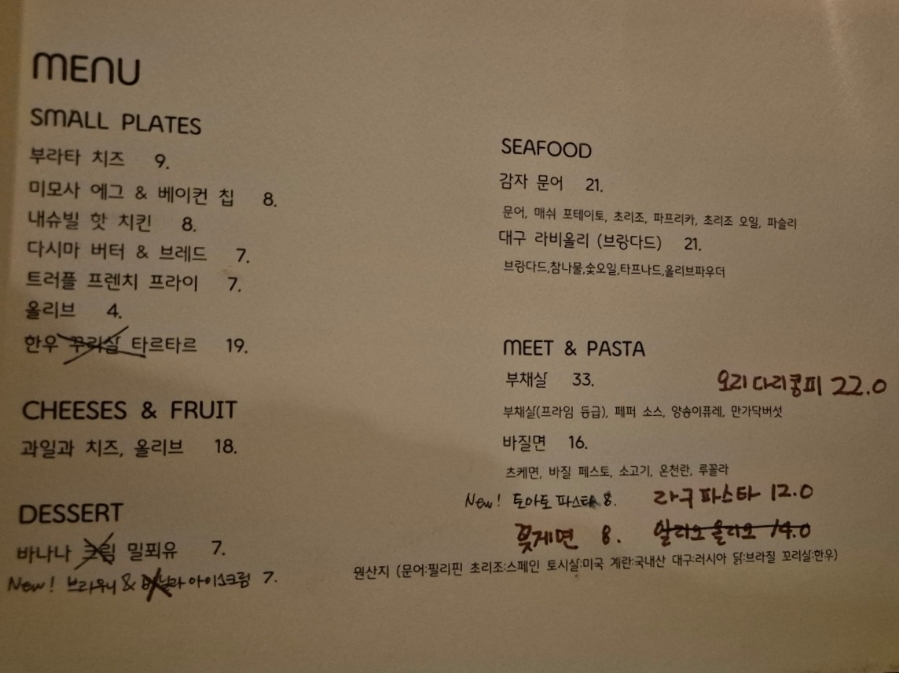 MENU
SMALL PLATES
부라타 치즈 9.
미모사 에그 & 베이컨 칩 8.
내슈빌 핫 치킨 8.
다시마 버터 & 브레드 7.
트러플 프렌치 프라이 7.
올리브 4.
한우 꾸리살 타르타르 19.
CHEESES & FRUIT
과일과 치즈, 올리브 18.
DESSERT
바나나 크림 밀푀유 7.
New! 브라우니 & 아이스크림 7.
SEAFOOD
감자 문어 21.
문어, 매쉬 포테이토, 초리조, 파프리카, 초리조 오일, 파슬리
대구 라비올리 (브랑다드) 21.
브랑다드,참나물,숯오일,타프나드,올리브파우더
MEET & PASTA
부채살 33.
오리다리콩피 22.0
부채살(프라임 등급), 페퍼 소스, 양송이퓨레, 만가닥버섯
바질면 16.
츠케면, 바질 페스토, 소고기, 온천란, 루꼴라
New! 토마토 파스타 8. 라구파스타 12.0
꽃게면 8. 알리오올리오 14.0
원산지 (문어:필리핀 초리조:스페인 토시살:미국 계란:국내산 대구:러시아 닭:브라질 꼬리살:한우)